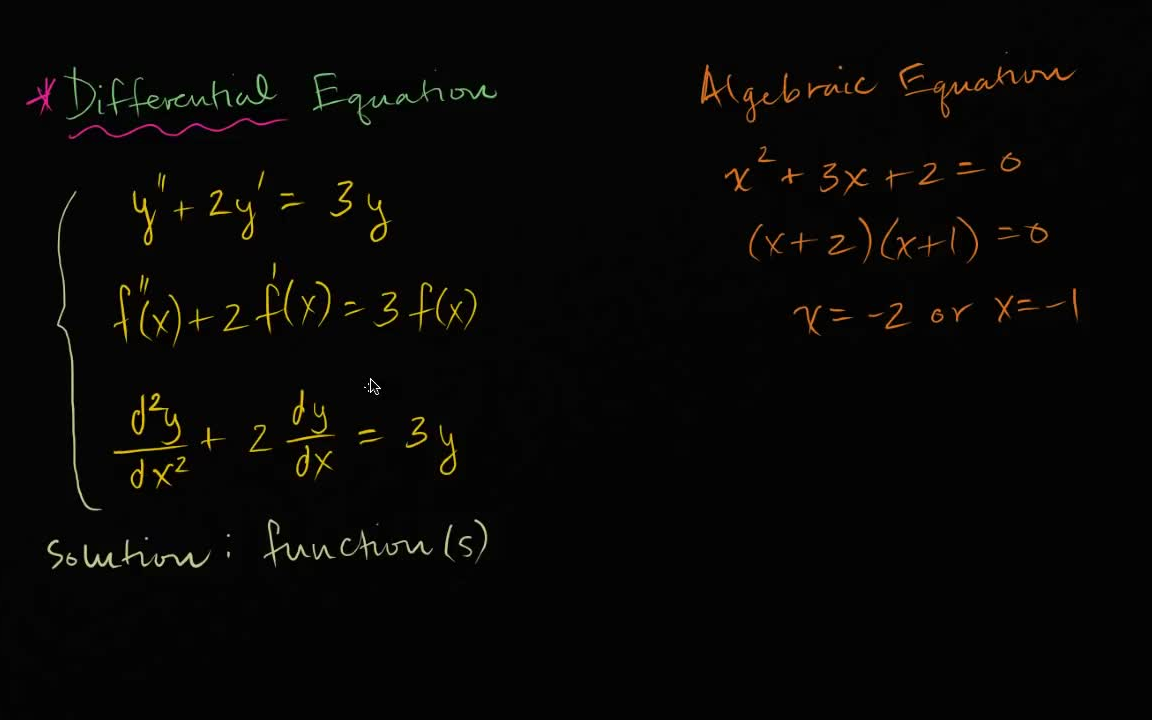 * Differential Equation
y'' + 2y' = 3y
f''(x) + 2 f'(x) = 3 f(x)
d²y/dx² + 2 dy/dx = 3y
Solution: function(s)
Algebraic Equation
x² + 3x + 2 = 0
(x + 2)(x + 1) = 0
x = -2 or x = -1